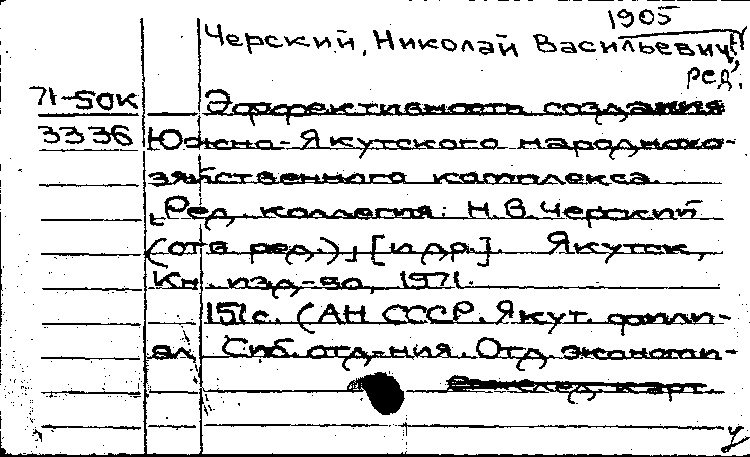 1905
Черский, Николай Васильевич,
ред.
71-50к Эффективность создания
3336 Южно-Якутского народнохо-
зяйственного комплекса.
[Ред. коллегия: Н.В. Черский
(отв. ред.)] [и др.]. Якутск,
Кн. изд-во, 1971.
151с. (АН СССР. Якут. фили-
ал Сиб. отд-ния. Отд. экономи-
след. карт.